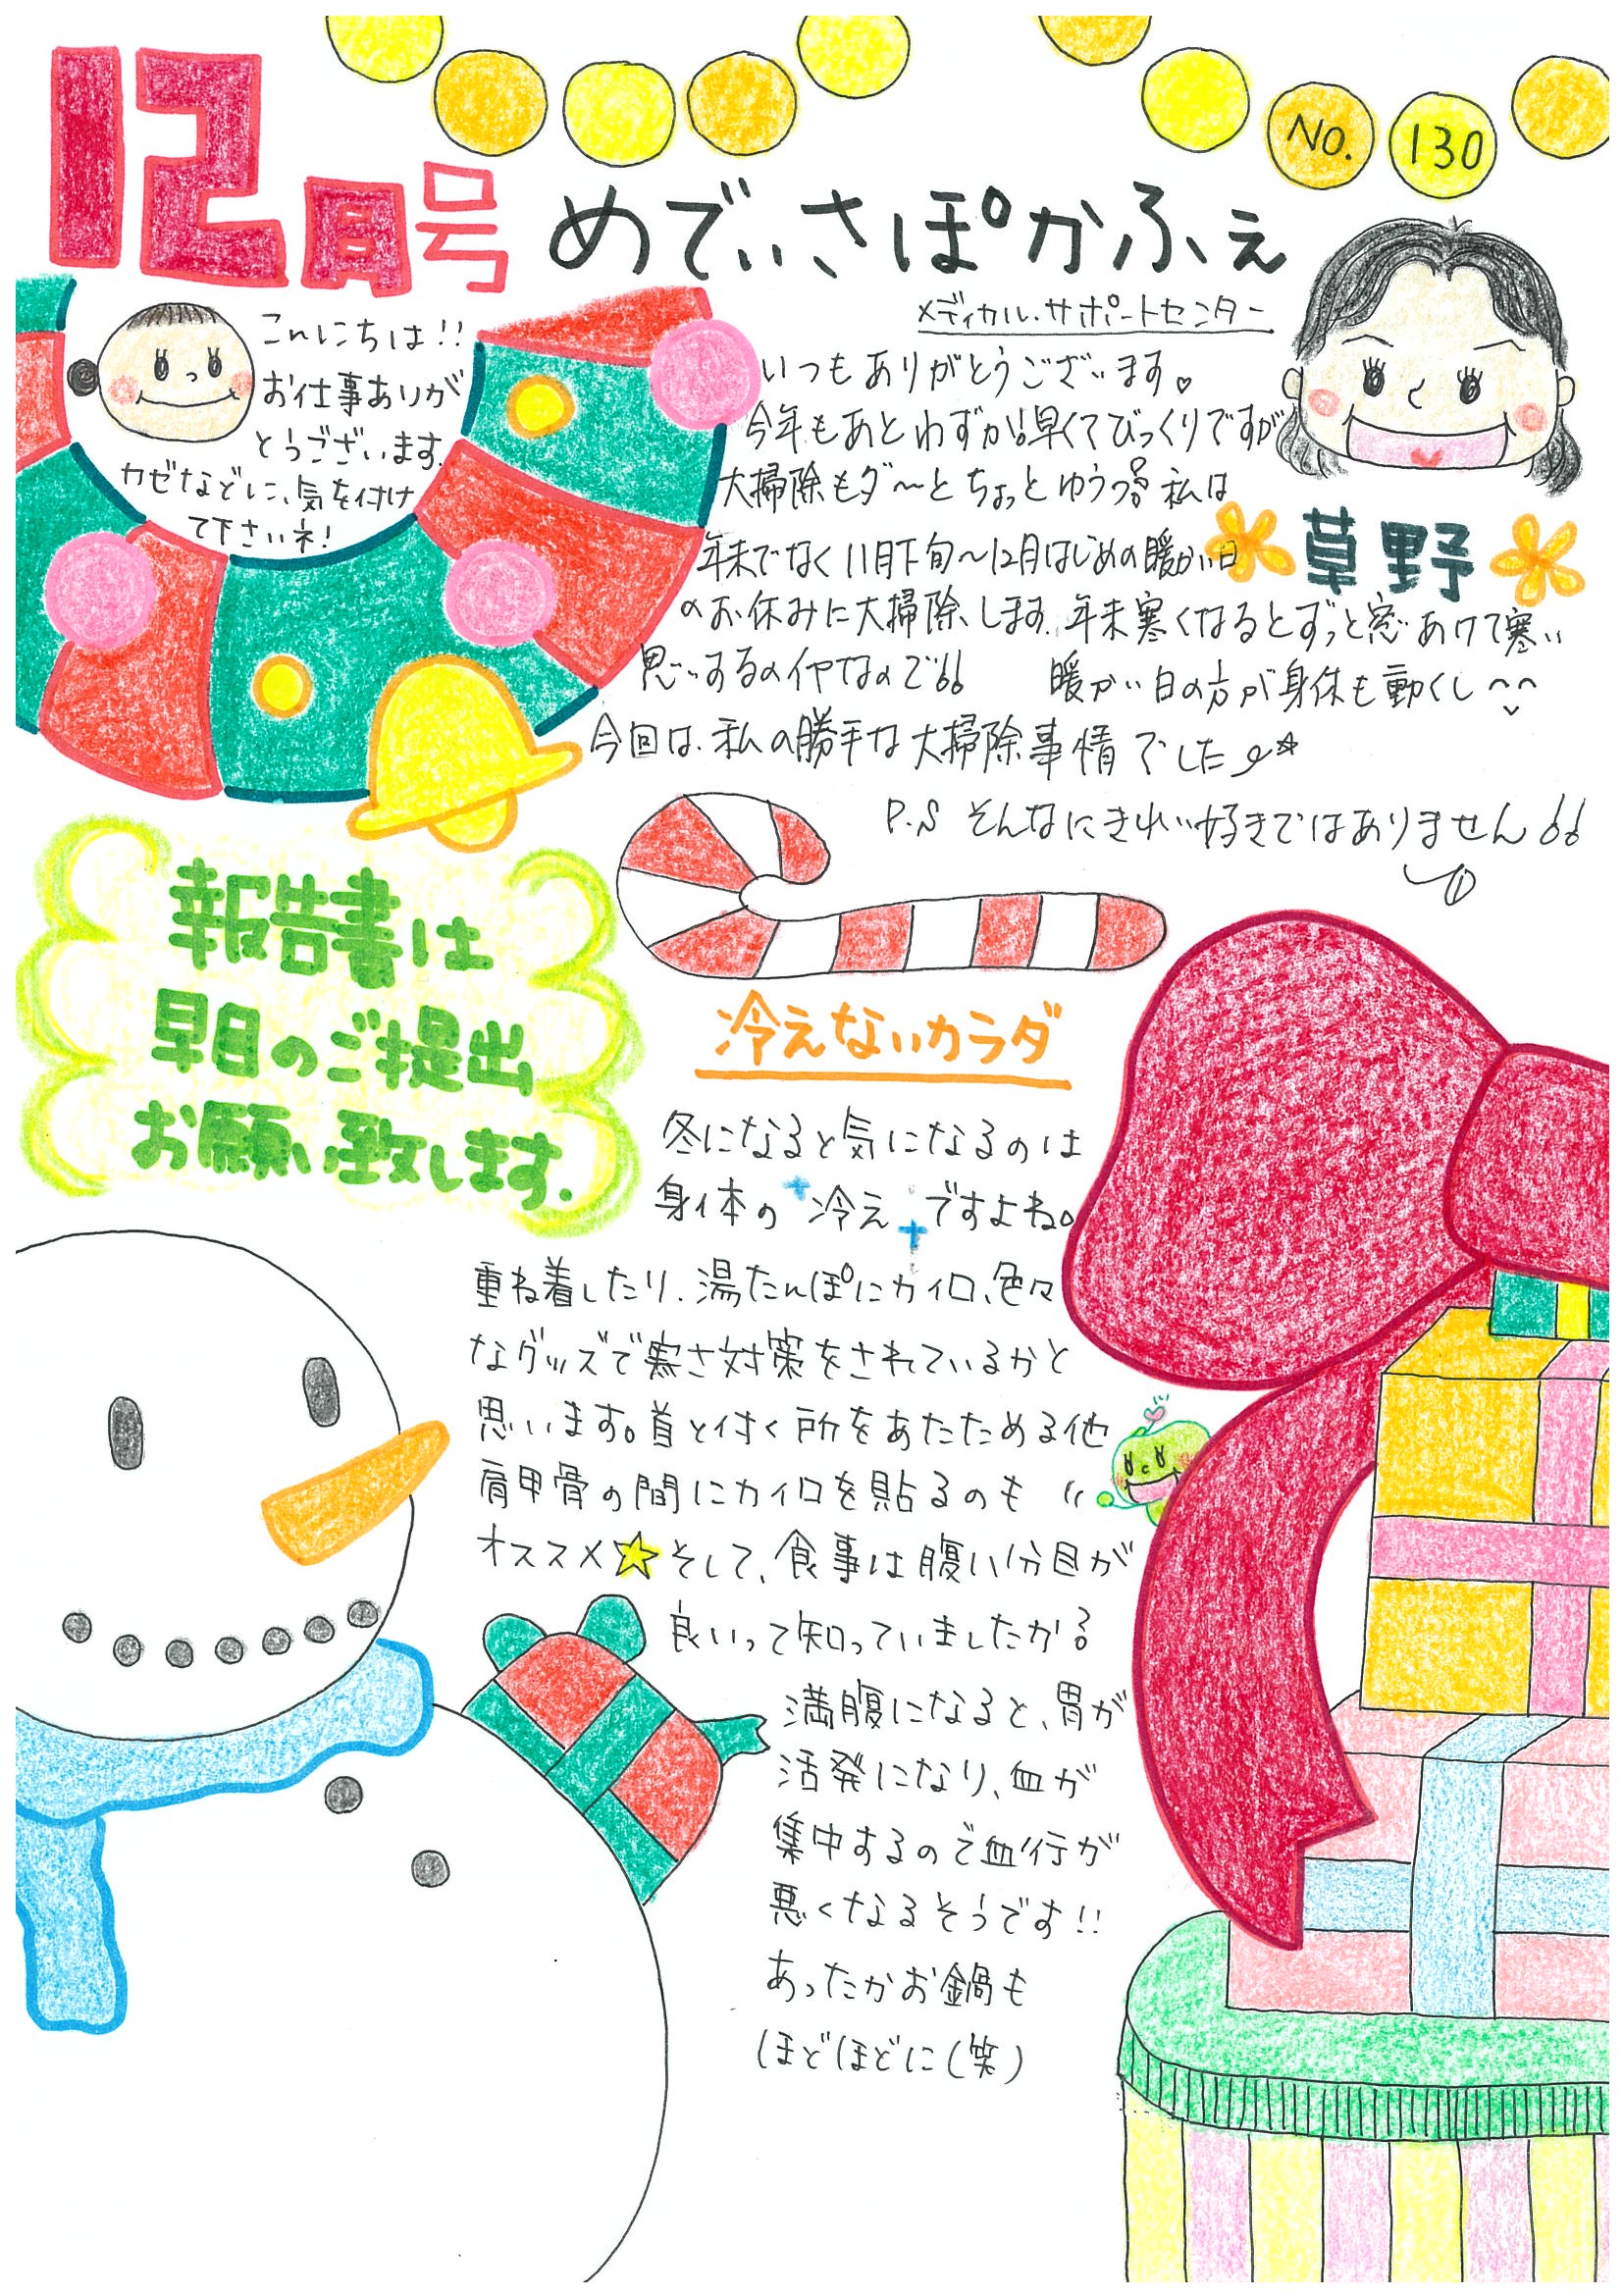 12月号
NO. 130
めでぃさぽかふぇ
メディカル・サポートセンター
こんにちは!!
お仕事ありが
とうございます.
カゼなどに、気を付け
て下さいネ!
いつもありがとうございます。
今年もあとわずか!早くてびっくりですが
大掃除もダ〜とちょっとゆううつ 私は
年末でなく11月下旬〜12月はじめの暖かい日
のお休みに大掃除します. 年末寒くなるとずっと窓あけて寒い
思いするのイヤなので 暖かい日の方が身体も動くし^^
今回は、私の勝手な大掃除事情でした
草野
P.S そんなにきれい好きではありません
報告書は
早目のご提出
お願い致します.
冷えないカラダ
冬になると気になるのは
身体の 冷え ですよね。
重ね着したり、湯たんぽにカイロ、色々
なグッズで寒さ対策をされているかと
思います。首と付く所をあたためる他
肩甲骨の間にカイロを貼るのも
オススメ☆そして、食事は腹八分目が
良いって知っていましたか?
満腹になると、胃が
活発になり、血が
集中するので血行が
悪くなるそうです!!
あったかお鍋も
ほどほどに(笑)